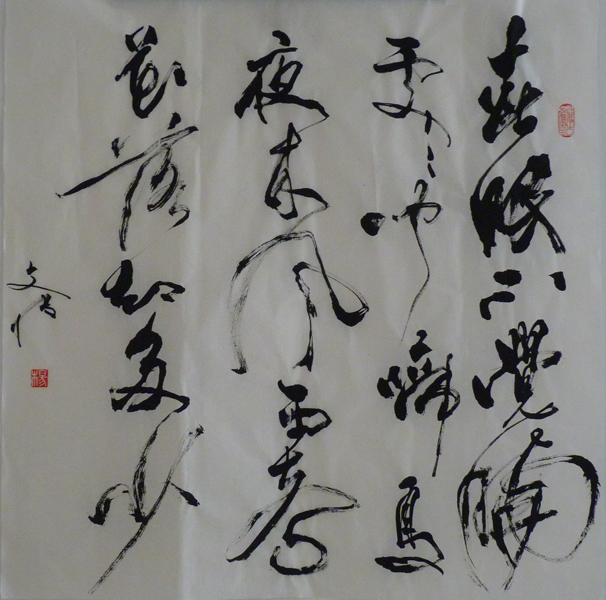 春眠不覺曉
處々聞啼鳥
夜来風雨聲
花落知多少
文